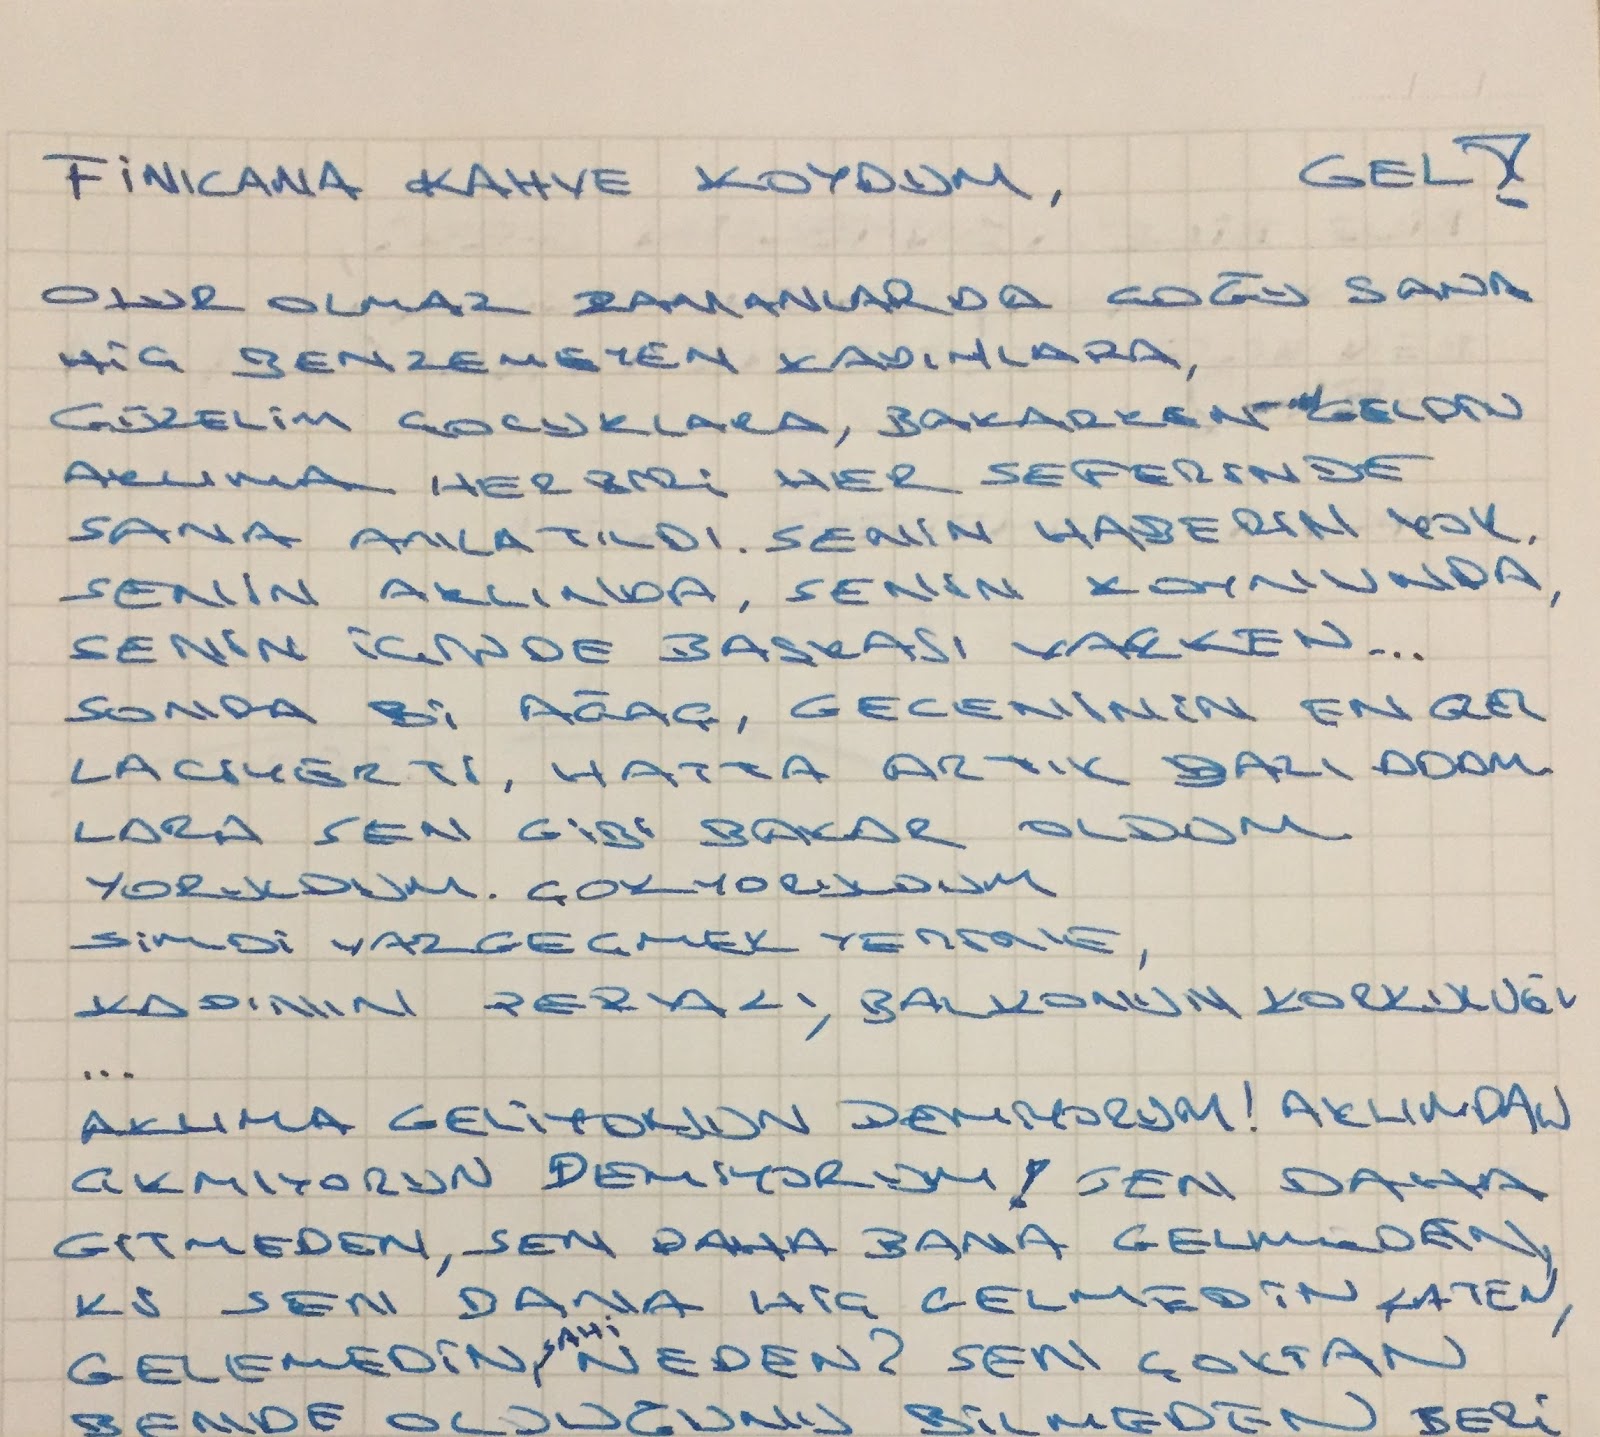 FİNCANA KAHVE KOYDUM, GEL?!
OLUR OLMAZ ZAMANLARDA ÇOĞU SANA
HİÇ BENZEMEYEN KADINLARA,
GÜZELİM ÇOCUKLARA, BAKARKEN GELDİN
AKLIMA HER BİRİ HER SEFERİNDE
SANA ANLATILDI. SENİN HABERİN YOK.
SENİN AKLINDA, SENİN KOYNUNDA,
SENİN İÇİNDE BAŞKASI VARKEN...
SONDA Bİ AĞAÇ, GECENİNİN EN
LACİVERTİ, HATTA ARTIK BAZI ADAM
LARA SEN GİBİ BAKAR OLDUM
YORULDUM. ÇOK YORULDUM
ŞİMDİ VAZGEÇMEK YERİNE,
KADININ, BALKONUN KORKULUĞU
...
AKLIMA GELİYORSUN DEMİYORUM! AKLIMDAN
ÇIKMIYORSUN DEMİYORUM! SEN DAHA
GİTMEDEN, SEN DAHA BANA GELMEDEN,
Kİ SEN BANA HİÇ GELMEDİN ZATEN,
GELEMEDİN, SAHİ NEDEN? SEN ÇOKTAN
BENDE OLDUĞUNU BİLMEDEN BERİ